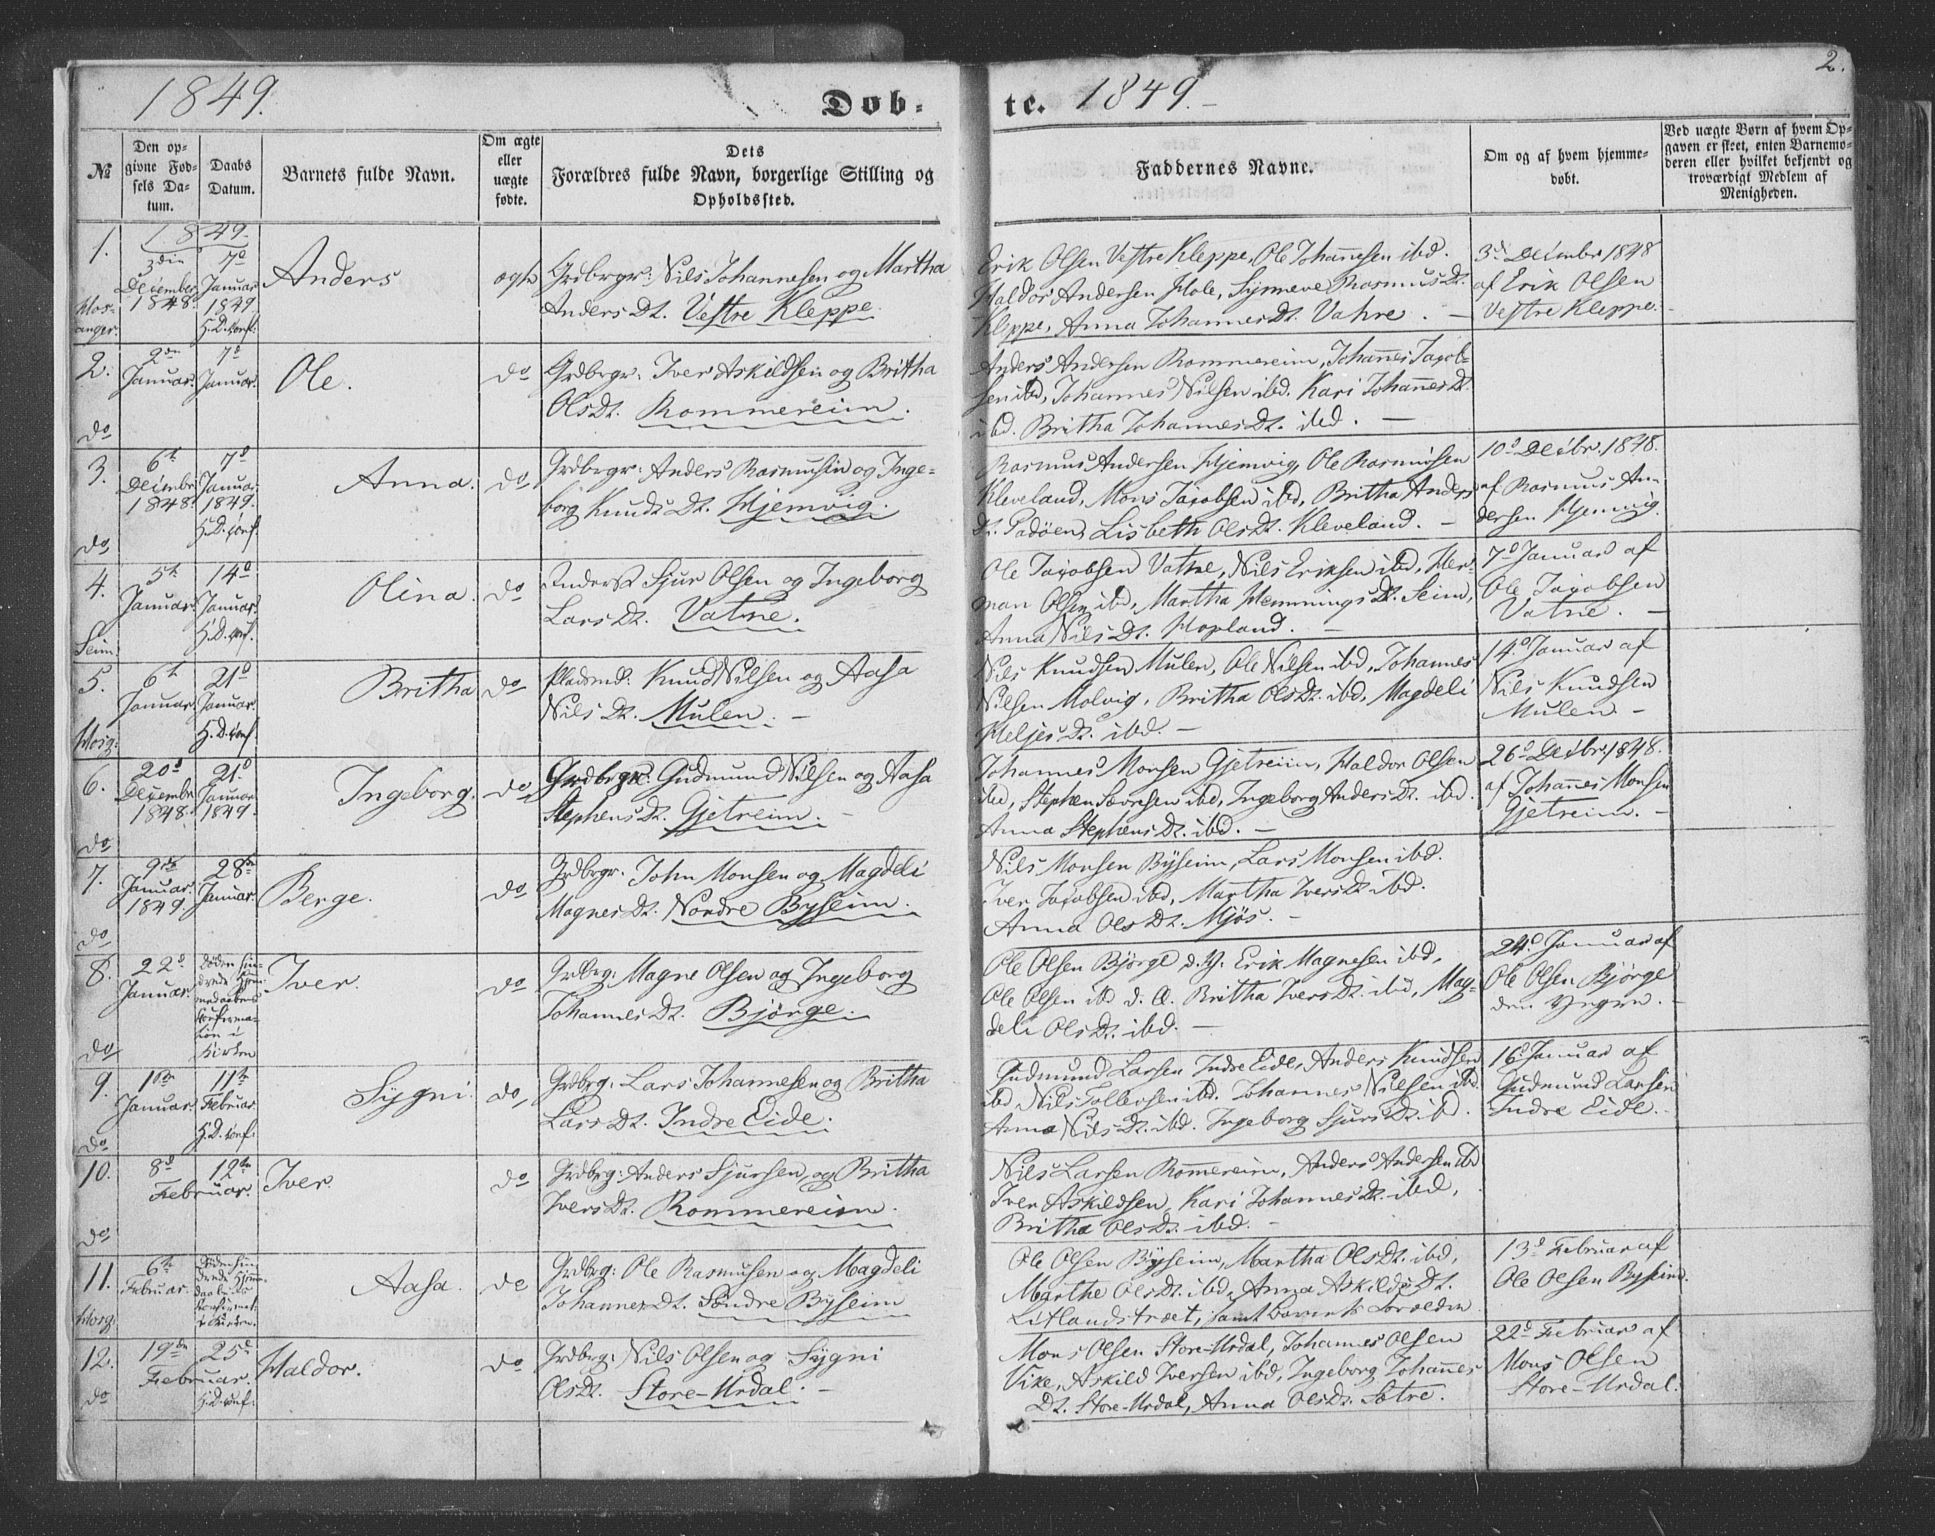 1849.
Dob-
te. 1849.-
2.
№
Den op-
givne Fød-
sels Da-
tum.
Daabs
Datum.
Barnets fulde Navn.
Om ægte
eller
uægte
fødte.
Dets
Forældres fulde Navn, borgerlige Stilling og
Opholdssted.
Faddernes Navne.
Om og af hvem hjemme-
døbt.
Ved uægte Børn af hvem Op-
gaven er skeet, enten Barnemo-
deren eller hvilket bekjendt og
troværdigt Medlem af
Menigheden.
1849.
1.
3die
December
1848.
7d
Januar
1849
H.D. conf.
Anders
ægte
Grdbrgr: Nils Johannesen og Martha
Anders Dt. Vestre Kleppe.
Erik Olsen Vestre Kleppe, Ole Johannesen ibd.
Haldor Andersen Hole, Synneve Rasmus Dt.
Kleppe, Anna Johannes Dt. Vatne. -
3d Decimbr 1848
af Erik Olsen
Vestre Kleppe.
Hos-
anger.
2.
2den
Januar.
7d
Januar.
Ole.
do
Grdbrgr: Iver Askildsen og Britha
Ols Dt. Rommereim.
Anders Andersen Rommereim, Johannes Jacob-
sen ibd, Johannes Nilsen ibd. Kari Johannes Dt.
ibd. Britha Johannes Dt. ibd. -
do
3.
6t
Decimbr
1848.
7d
Januar.
1849.
H.D. conf.
Anna.
do
Grdbrgr: Anders Rasmusen og Inge-
borg Knuds Dt. Hjemvig.
Rasmus Andersen Hjemvig, Ole Rasmusen
Kleveland, Mons Jacobsen ibd, Britha Anders
Dt. Padøen, Lisbeth Ols Dt. Kleveland. -
10d Decibr. 1848.
af Rasmus An-
dersen Hjemvig.
do,
4.
5t
Januar.
14d
Januar.
H.D. conf.
Olina.
do
Inderst Sjur Olsen og Ingeborg
Lars Dt. Vatne.
Ole Jacobsen Vatne, Nils Eriksen ibd, Her-
man Olsen ibd, Martha Hemmings Dt. Seim,
Anna Nils Dt. Hopland. -
7d Januar af
Ole Jacobsen
Vatne. -
Seim.
5.
6t
Januar.
21d
Januar.
H.D. conf.
Britha
do
Pladsmd. Knud Nilsen og Aasa
Nils Dt. Mulen. -
Nils Knudsen Mulen, Ole Nilsen ibd, Johannes
Nilsen Molvig, Britha Ols Dt. ibd, Magdeli
Heljes Dt. ibd. -
14d Januar af
Nils Knudsen
Mulen. -
Hosg.
6.
20d
Decimbr
1848.
21d
Januar
1849.
Ingeborg.
do,
Grdbrgr: Gudmund Nilsen og Aasa
Stephens Dt. Gjetreim. -
Johannes Monsen Gjetreim, Haldor Olsen
ibd, Stephen Sævresen ibd, Ingeborg Anders Dt. ibd.
Anna Stephens Dt. ibd. -
26d Decibr. 1848.
af Johannes Monsen
Gjetreim. -
do
7.
9de
Januar.
1849.
28de
Januar.
Berge.
do
Grdbrgr. John Monsen og Magdeli
Magnes Dt. Nordre Byseim.
Nils Monsen Byseim, Lars Monsen ibd.
Iver Jacobsen ibd, Martha Ivers Dt. ibd.
Anna Ols Dt. Mjøs. -
do
8.
22d
Januar.
Døden hin-
drede Hjem-
medaabens
Confirma-
tion i
Kirken
Iver.
do
Grdbrg: Magne Olsen og Ingeborg
Johannes Dt. Bjørge.
Ole Olsen Bjørge d. Y. Erik Magnesen ibd,
Ole Olsen ibd d. Æ. Britha Ivers Dt. ibd, Mag-
deli Ols Dt. ibd. -
24d Januar af
Ole Olsen Bjørge
den Yngre. -
do
9.
1ste
Januar.
11te
Februar
H.D. conf.
Sygni.
do,
Grdbrg: Lars Johannesen og Britha
Lars Dt. Indre Eide.
Gudmund Larsen Indre Eide, Anders Knudsen
ibd, Nils Tolleivsen ibd. Johannes Nilsen ibd.
Anna Nils Dt. ibd. Ingeborg Sjurs Dt. ibd.
16d Januar af
Gudmund Larsen
Indre Eide. -
do
10.
8d
12te
Februar.
Iver.
do
Grdbrg: Anders Sjursen, og Britha
Ivers Dt. Rommereim.
Nils Larsen Romereim, Anders Andersen ibd
Iver Askildsen, Kari Johannes Dt. ibd,
Britha Ols Dt. ibd. -
do
11.
6te
Februar.
Døden hin-
drede Hjem-
daabens
Confirmat.
i Kirken.
Aasa.
do
Grdbrg: Ole Rasmusen og Magdeli
Johannes Dt. Søndre Byseim
Ole Olsen Byseim, Martha Ols Dt. ibd,
Marthe Ols Dt. ibd, Anna Askilds Dt.
Litlandstræet, samt Barnets Forældre
13d Februar af
Ole Olsen Byseim.
Hosg.
12.
19de
25d
Februar.
H.D. conf.
Haldor.
do
Grdbrg: Nils Olsen og Sygni
Ols Dt. Store-Urdal. -
Mons Olsen Store-Urdal, Johannes Olsen
Vike, Askild Iversen ibd, Ingeborg Johannes
Dt. Store-Urdal, Anna Ols Dt. Sætre.
22d Februar af
Mons Olsen
Store-Urdal.
do